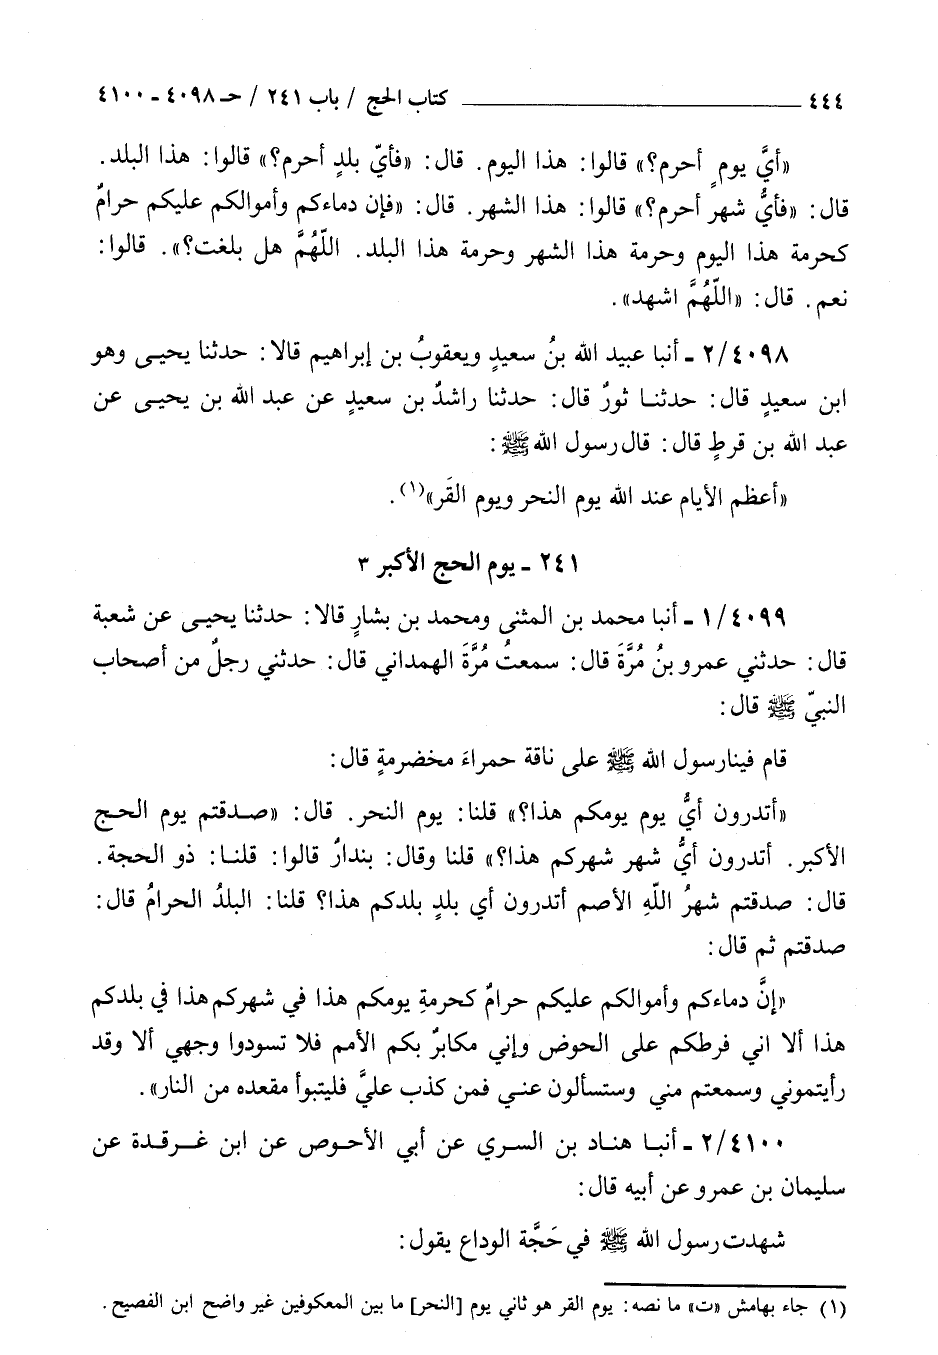 ٤٤٤ ــــــــــــــــ كتاب الحج / باب ٢٤١ / حـ ٤٠٩٨ ـ ٤١٠٠
«أيَّ يومٍ أحرم؟» قالوا: هذا اليوم. قال: «فأيّ بلدٍ أحرم؟» قالوا: هذا البلد.
قال: «فأيُّ شهر أحرم؟» قالوا: هذا الشهر. قال: «فإن دماءكم وأموالكم عليكم حرامٌ
كحرمة هذا اليوم وحرمة هذا الشهر وحرمة هذا البلد. اللّهُمَّ هل بلغت؟». قالوا:
نعم. قال: «اللّهُمَّ اشهد».
٢/٤٠٩٨ ـ أنبا عبيد الله بنُ سعيدٍ ويعقوبُ بن إبراهيم قالا: حدثنا يحيى وهو
ابن سعيدٍ قال: حدثنا ثورٌ قال: حدثنا راشدٌ بن سعيدٍ عن عبد الله بن يحيى عن
عبد الله بن قرطٍ قال: قال رسول الله ﷺ:
«أعظم الأيام عند الله يوم النحر ويوم القَر»(١).
٢٤١ ـ يوم الحج الأكبر ٣
١/٤٠٩٩ ـ أنبا محمد بن المثنى ومحمد بن بشارٍ قالا: حدثنا يحيى عن شعبة
قال: حدثني عمرو بنُ مُرَّةَ قال: سمعتُ مُرَّةَ الهمداني قال: حدثني رجلٌ من أصحاب
النبيّ ﷺ قال:
قام فينا رسول الله ﷺ على ناقة حمراءَ مخضرمةٍ قال:
«أتدرون أيُّ يوم يومكم هذا؟» قلنا: يوم النحر. قال: «صدقتم يوم الحج
الأكبر. أتدرون أيُّ شهر شهركم هذا؟» قلنا وقال: بندارٌ قالوا: قلنا: ذو الحجة.
قال: صدقتم شهرُ اللّهِ الأصم أتدرون أي بلدٍ بلدكم هذا؟ قلنا: البلدُ الحرامُ قال:
صدقتم ثم قال:
«إنَّ دماءكم وأموالكم عليكم حرامٌ كحرمةِ يومكم هذا في شهركم هذا في بلدكم
هذا ألا اني فرطكم على الحوض وإني مكابرٌ بكم الأمم فلا تسودوا وجهي ألا وقد
رأيتموني وسمعتم مني وستسألون عني فمن كذب عليَّ فليتبوأ مقعده من النار».
٢/٤١٠٠ ـ أنبا هناد بن السري عن أبي الأحوص عن ابن غرقدة عن
سليمان بن عمرو عن أبيه قال:
شهدت رسول الله ﷺ في حَجَّة الوداع يقول:
(١) جاء بهامش «ت» ما نصه: يوم القر هو ثاني يوم [النحر] ما بين المعكوفين غير واضح ابن الفصيح.